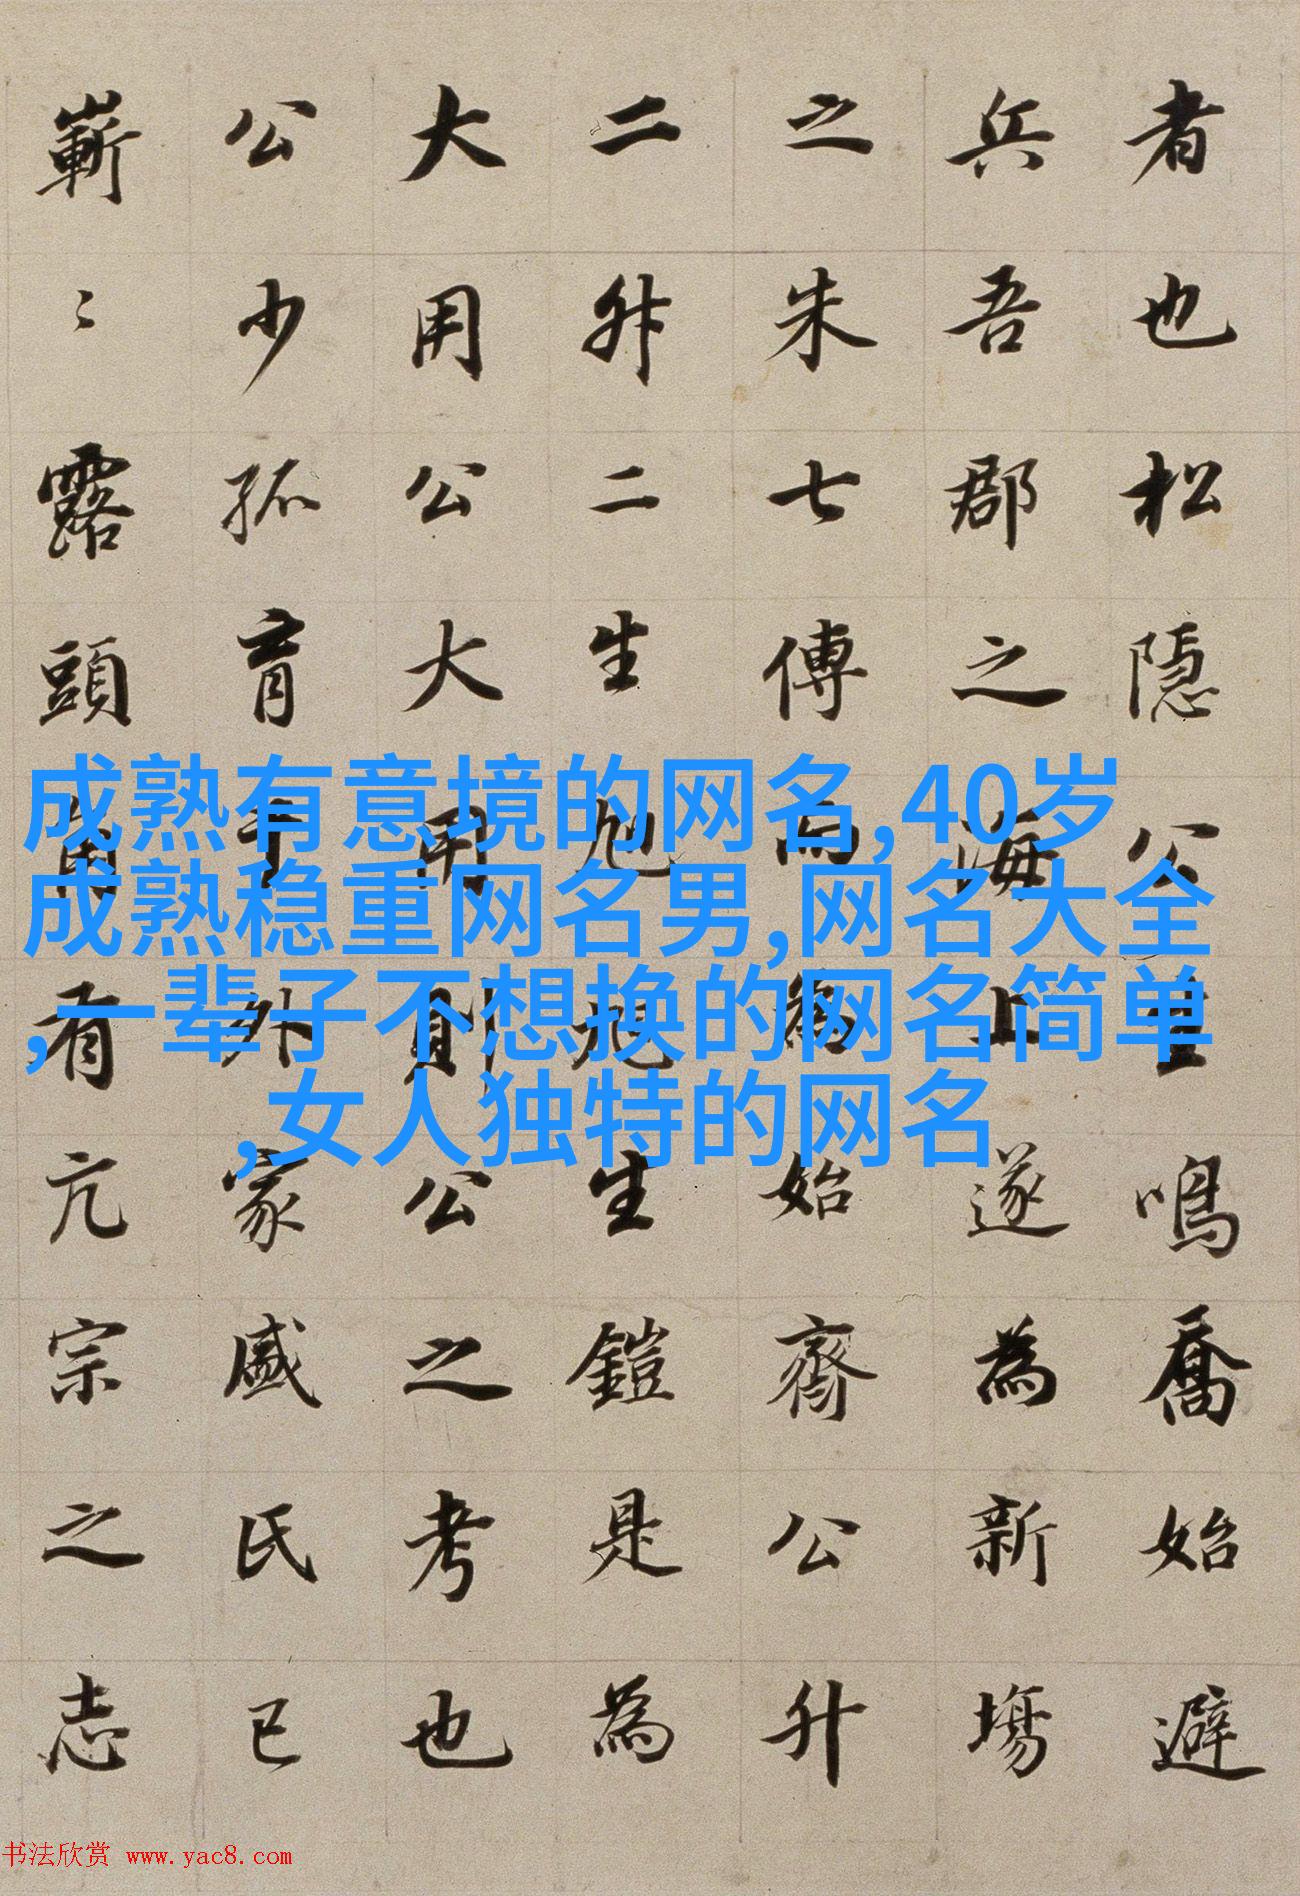 者也松隱公鳴喬始避
兵吾郡之海上遂為新場
之朱七傅而為始齊公升
二升二生旭旭生鎧是為
大用公大用則公之考也
公少孤育于外家戚氏已
嶄〻露頭角有亢宗之志
成熟有意境的网名,40岁
成熟稳重网名男,网名大全
,一辈子不想换的网名简单
,女人独特的网名
书法欣赏 www.yac8.com